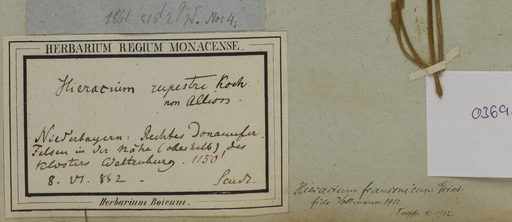 1861. 
HERBARIUM REGIUM MONACENSE.
Hieracium rupestre Koch
non Allion.
Niederbayern: Rechtes Donauufer,
Felsen in der Nähe (oberhalb) des
Klosters Weltenburg. 1150'
8. VI. 852. Sendt.
Herbarium Boicum.
Hieracium franconicum Griseb.
fide
0369